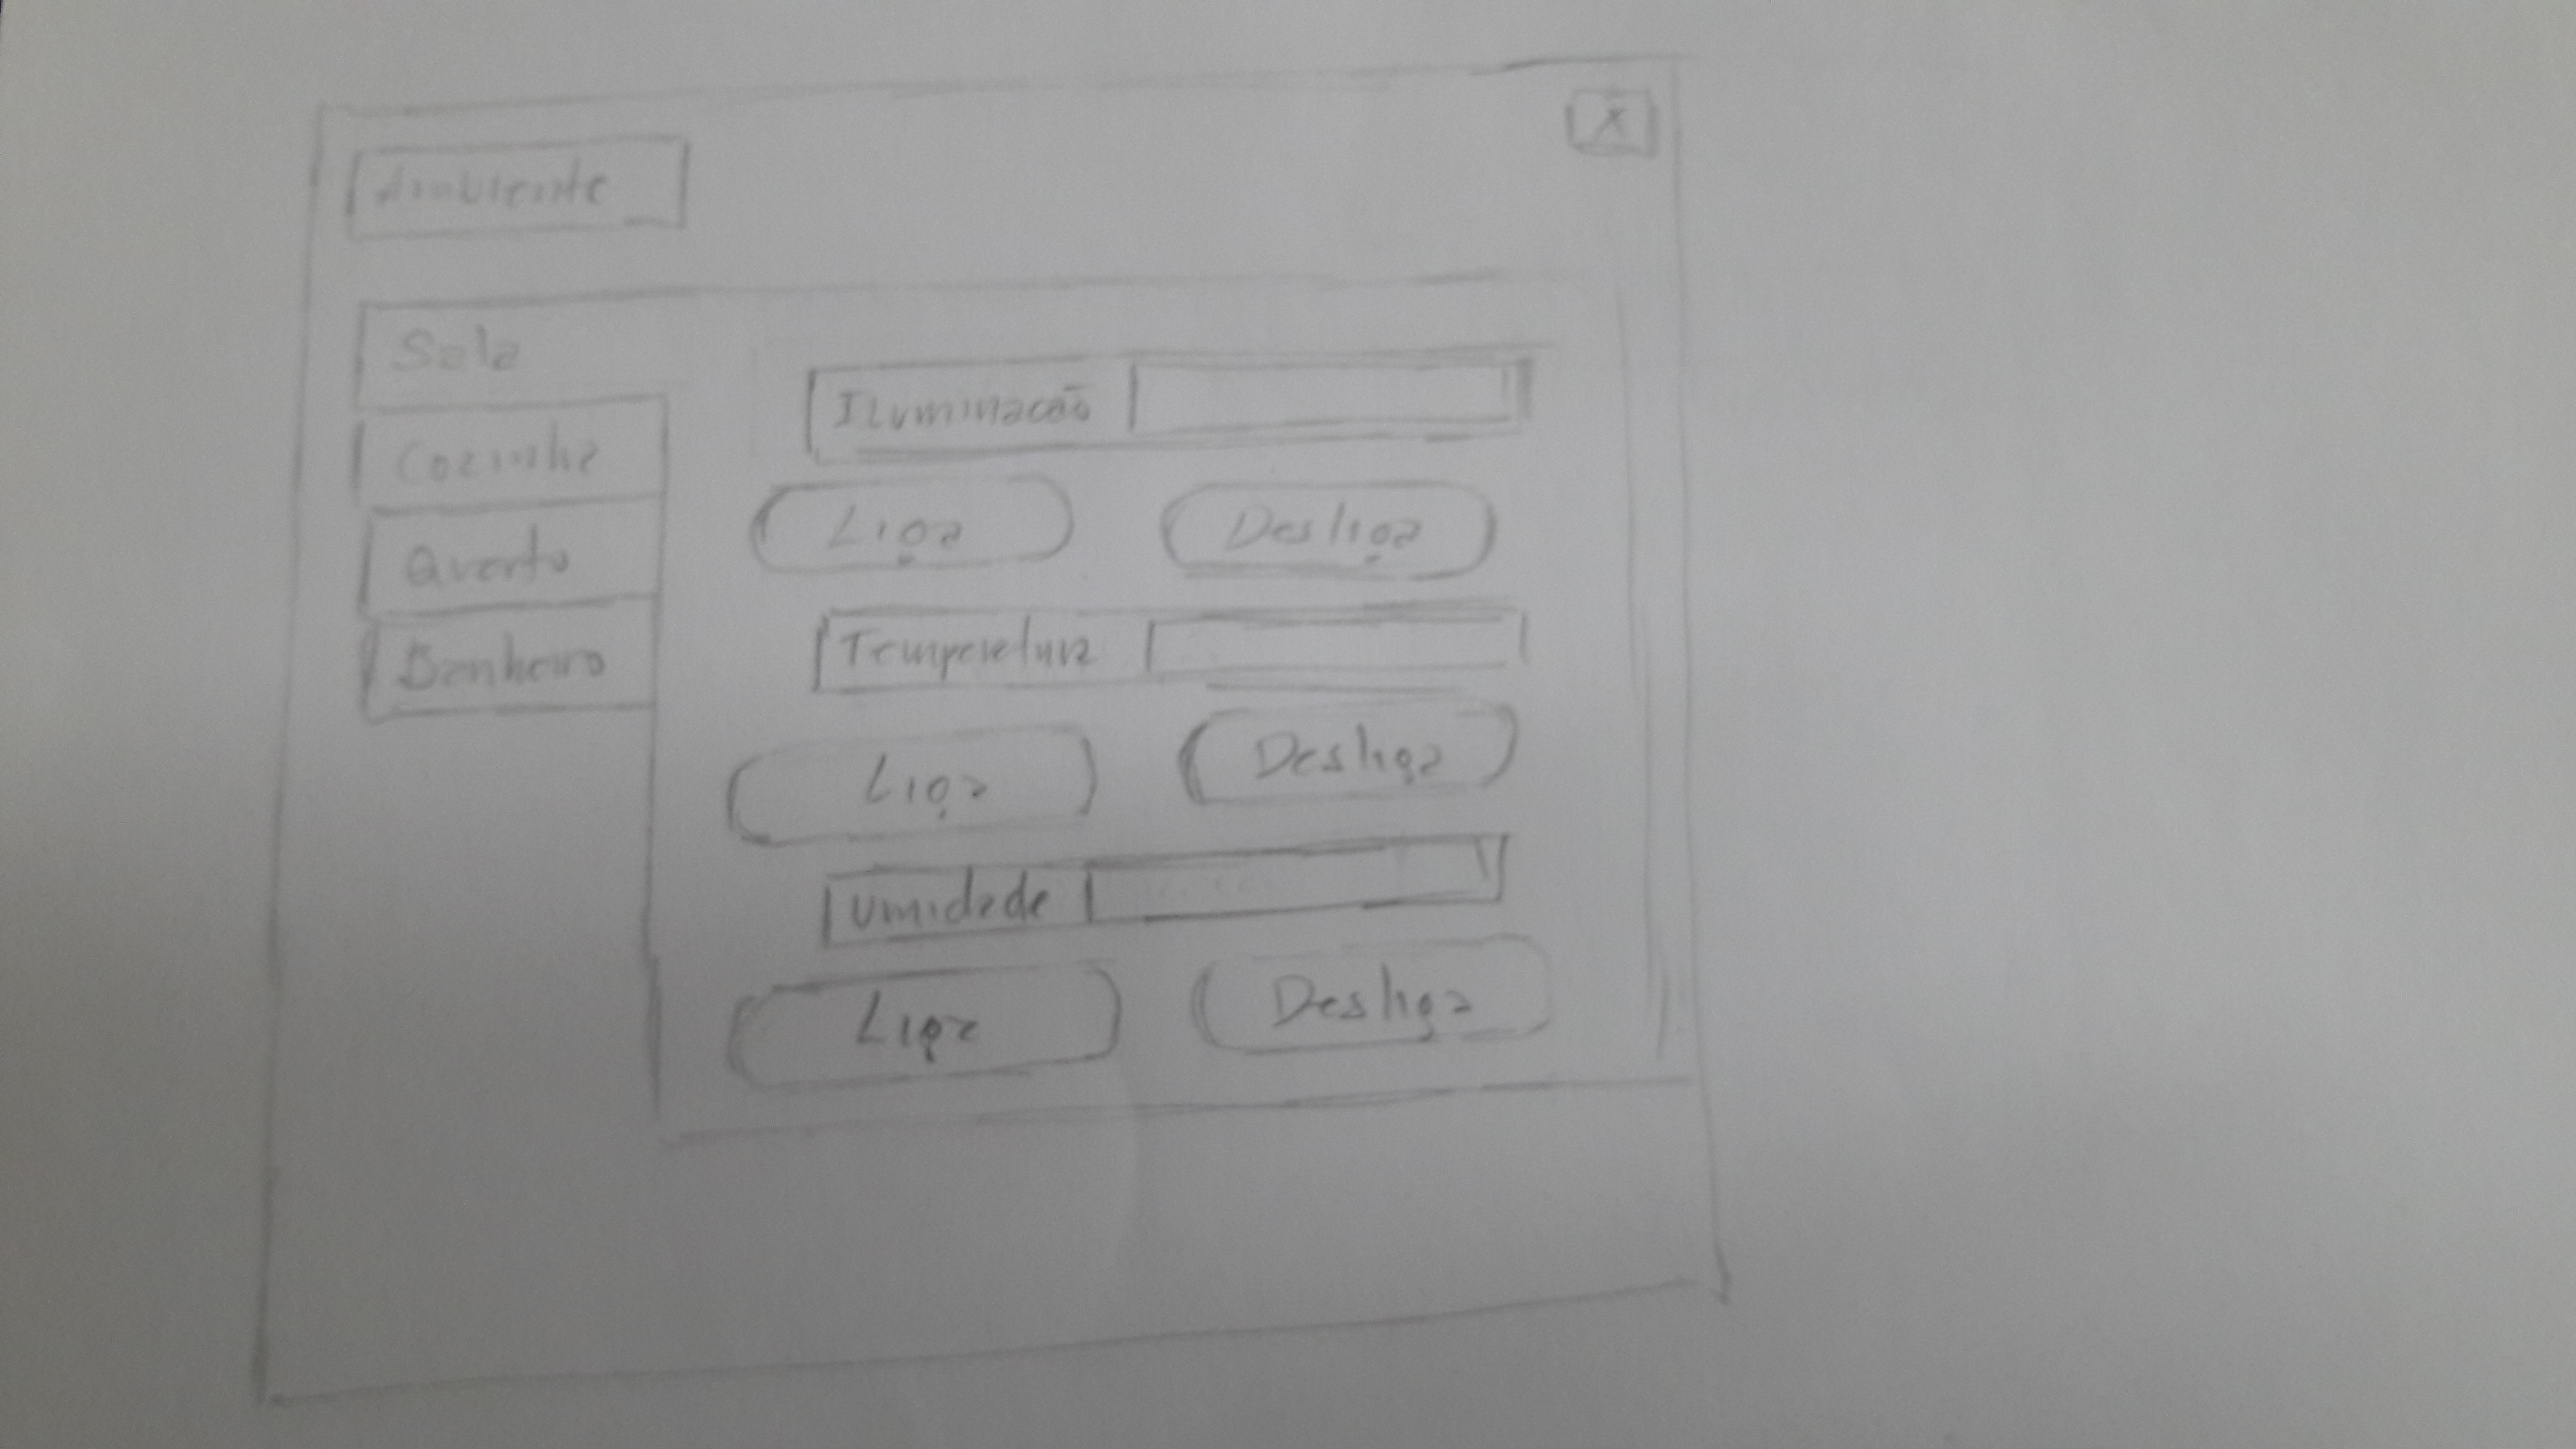 X
Ambiente
Sala
Cozinha
Quarto
Banheiro
Iluminacão
Liga Desliga
Temperatura
Liga Desliga
Umidade
Liga Desliga